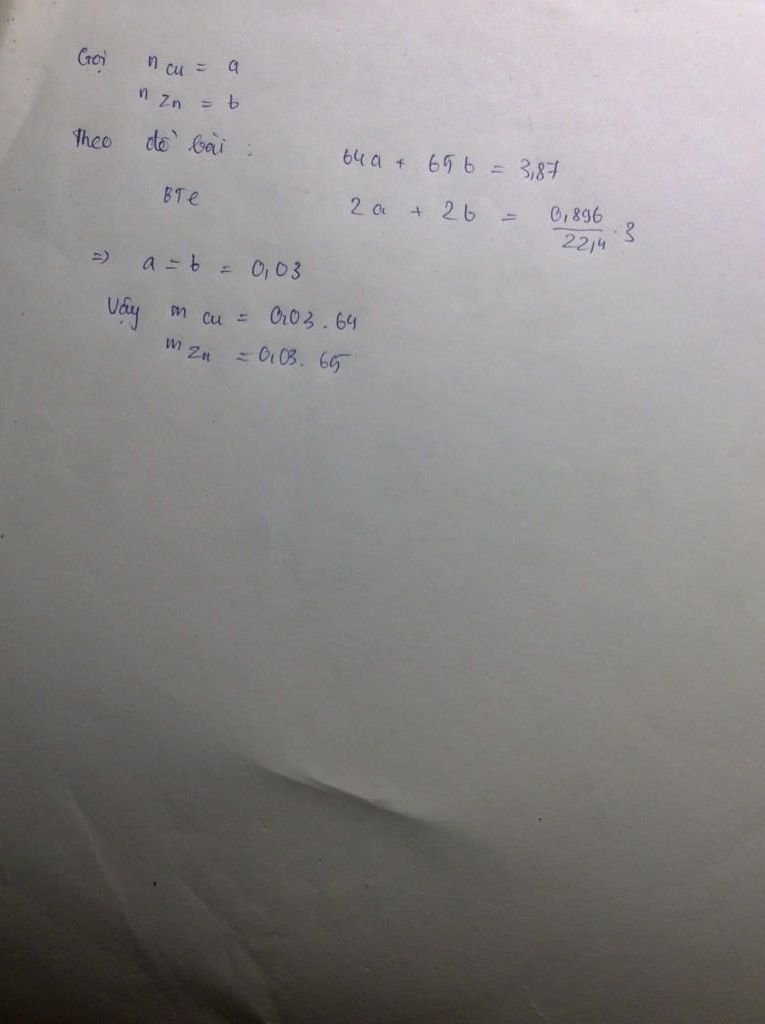 Gọi n Cu = a
n Zn = b
Theo đề bài : 64a + 65b = 3,87
BTe 2a + 2b = 0,896/22,4 . 3
=> a = b = 0,03
Vậy m Cu = 0,03 . 64
m Zn = 0,03 . 65